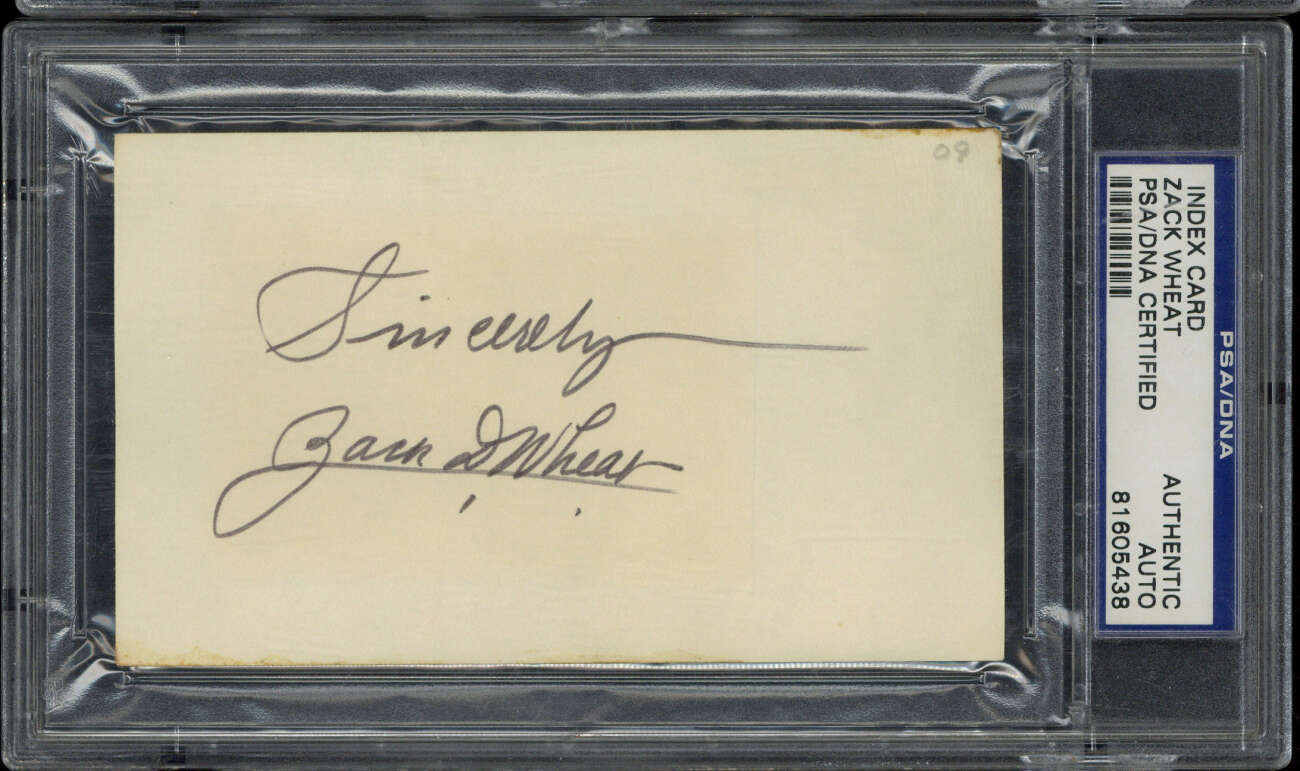 09
Sincerely
Zack D Wheat
PSA/DNA
INDEX CARD
ZACK WHEAT
PSA/DNA CERTIFIED
AUTHENTIC
AUTO
81605438